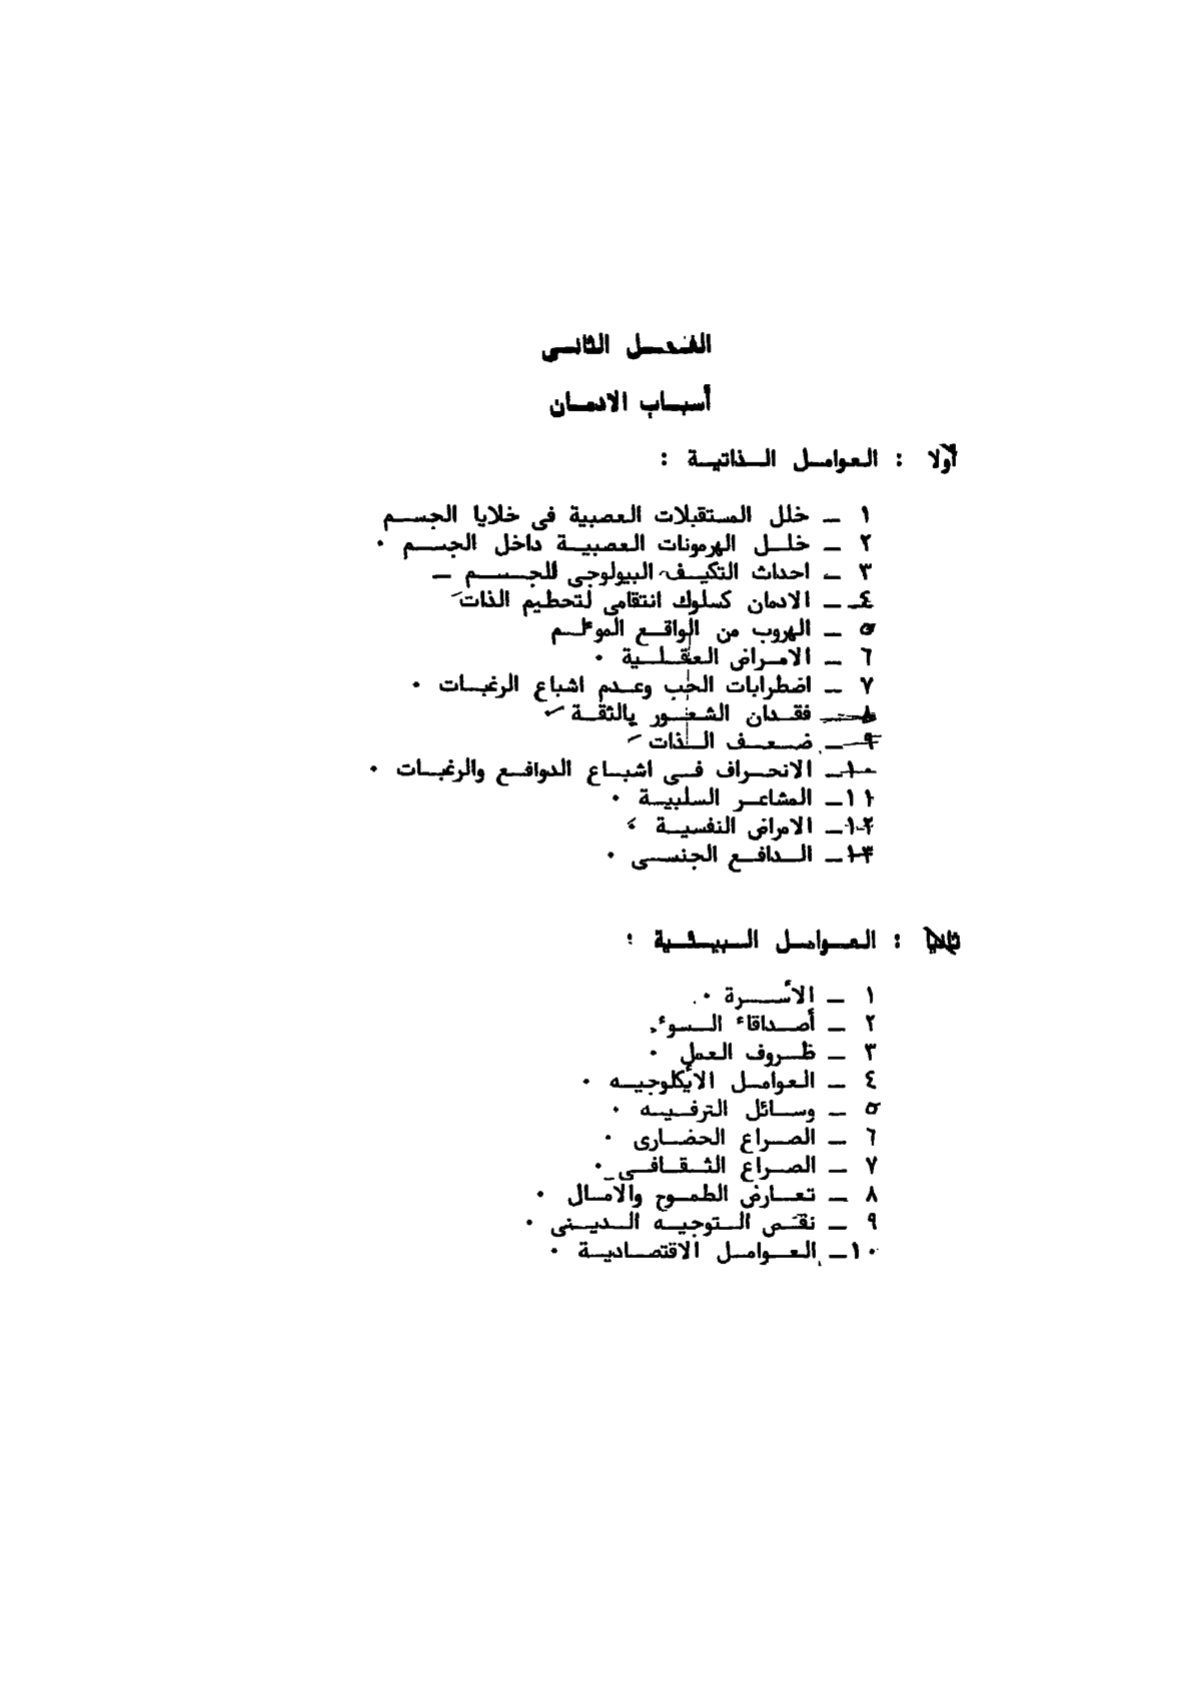 الفصل الثانى
أسباب الادمان
أولا : العوامل الذاتية :
١ ــ خلل المستقبلات العصبية فى خلايا الجسم
٢ ــ خلل الهرمونات العصبية داخل الجسم ٠
٣ ــ احداث التكيف البيولوجى للجسم ــ
٤ ــ الادمان كسلوك انتقامى لتحطيم الذات
٥ ــ الهروب من الواقع الموءلم
٦ ــ الامراض العقلية ٠
٧ ــ اضطرابات الحب وعدم اشباع الرغبات ٠
٨ ــ فقدان الشعور بالثقة ٠
٩ ــ ضعف الذات
١٠ــ الانحراف فى اشباع الدوافع والرغبات ٠
١١ــ المشاعر السلبية ٠
١٢ــ الامراض النفسية ٠
١٣ــ الدافع الجنسى ٠
ثانيا : العوامل البيئية :
١ ــ الأسرة ٠
٢ ــ أصداقاء السوء ٠
٣ ــ ظروف العمل ٠
٤ ــ العوامل الأيكلوجيه ٠
٥ ــ وسائل الترفيه ٠
٦ ــ الصراع الحضارى ٠
٧ ــ الصراع الثقافى ٠
٨ ــ تعارض الطموح والآمال ٠
٩ ــ نقص التوجيه الدينى ٠
١٠ــ العوامل الاقتصادية ٠